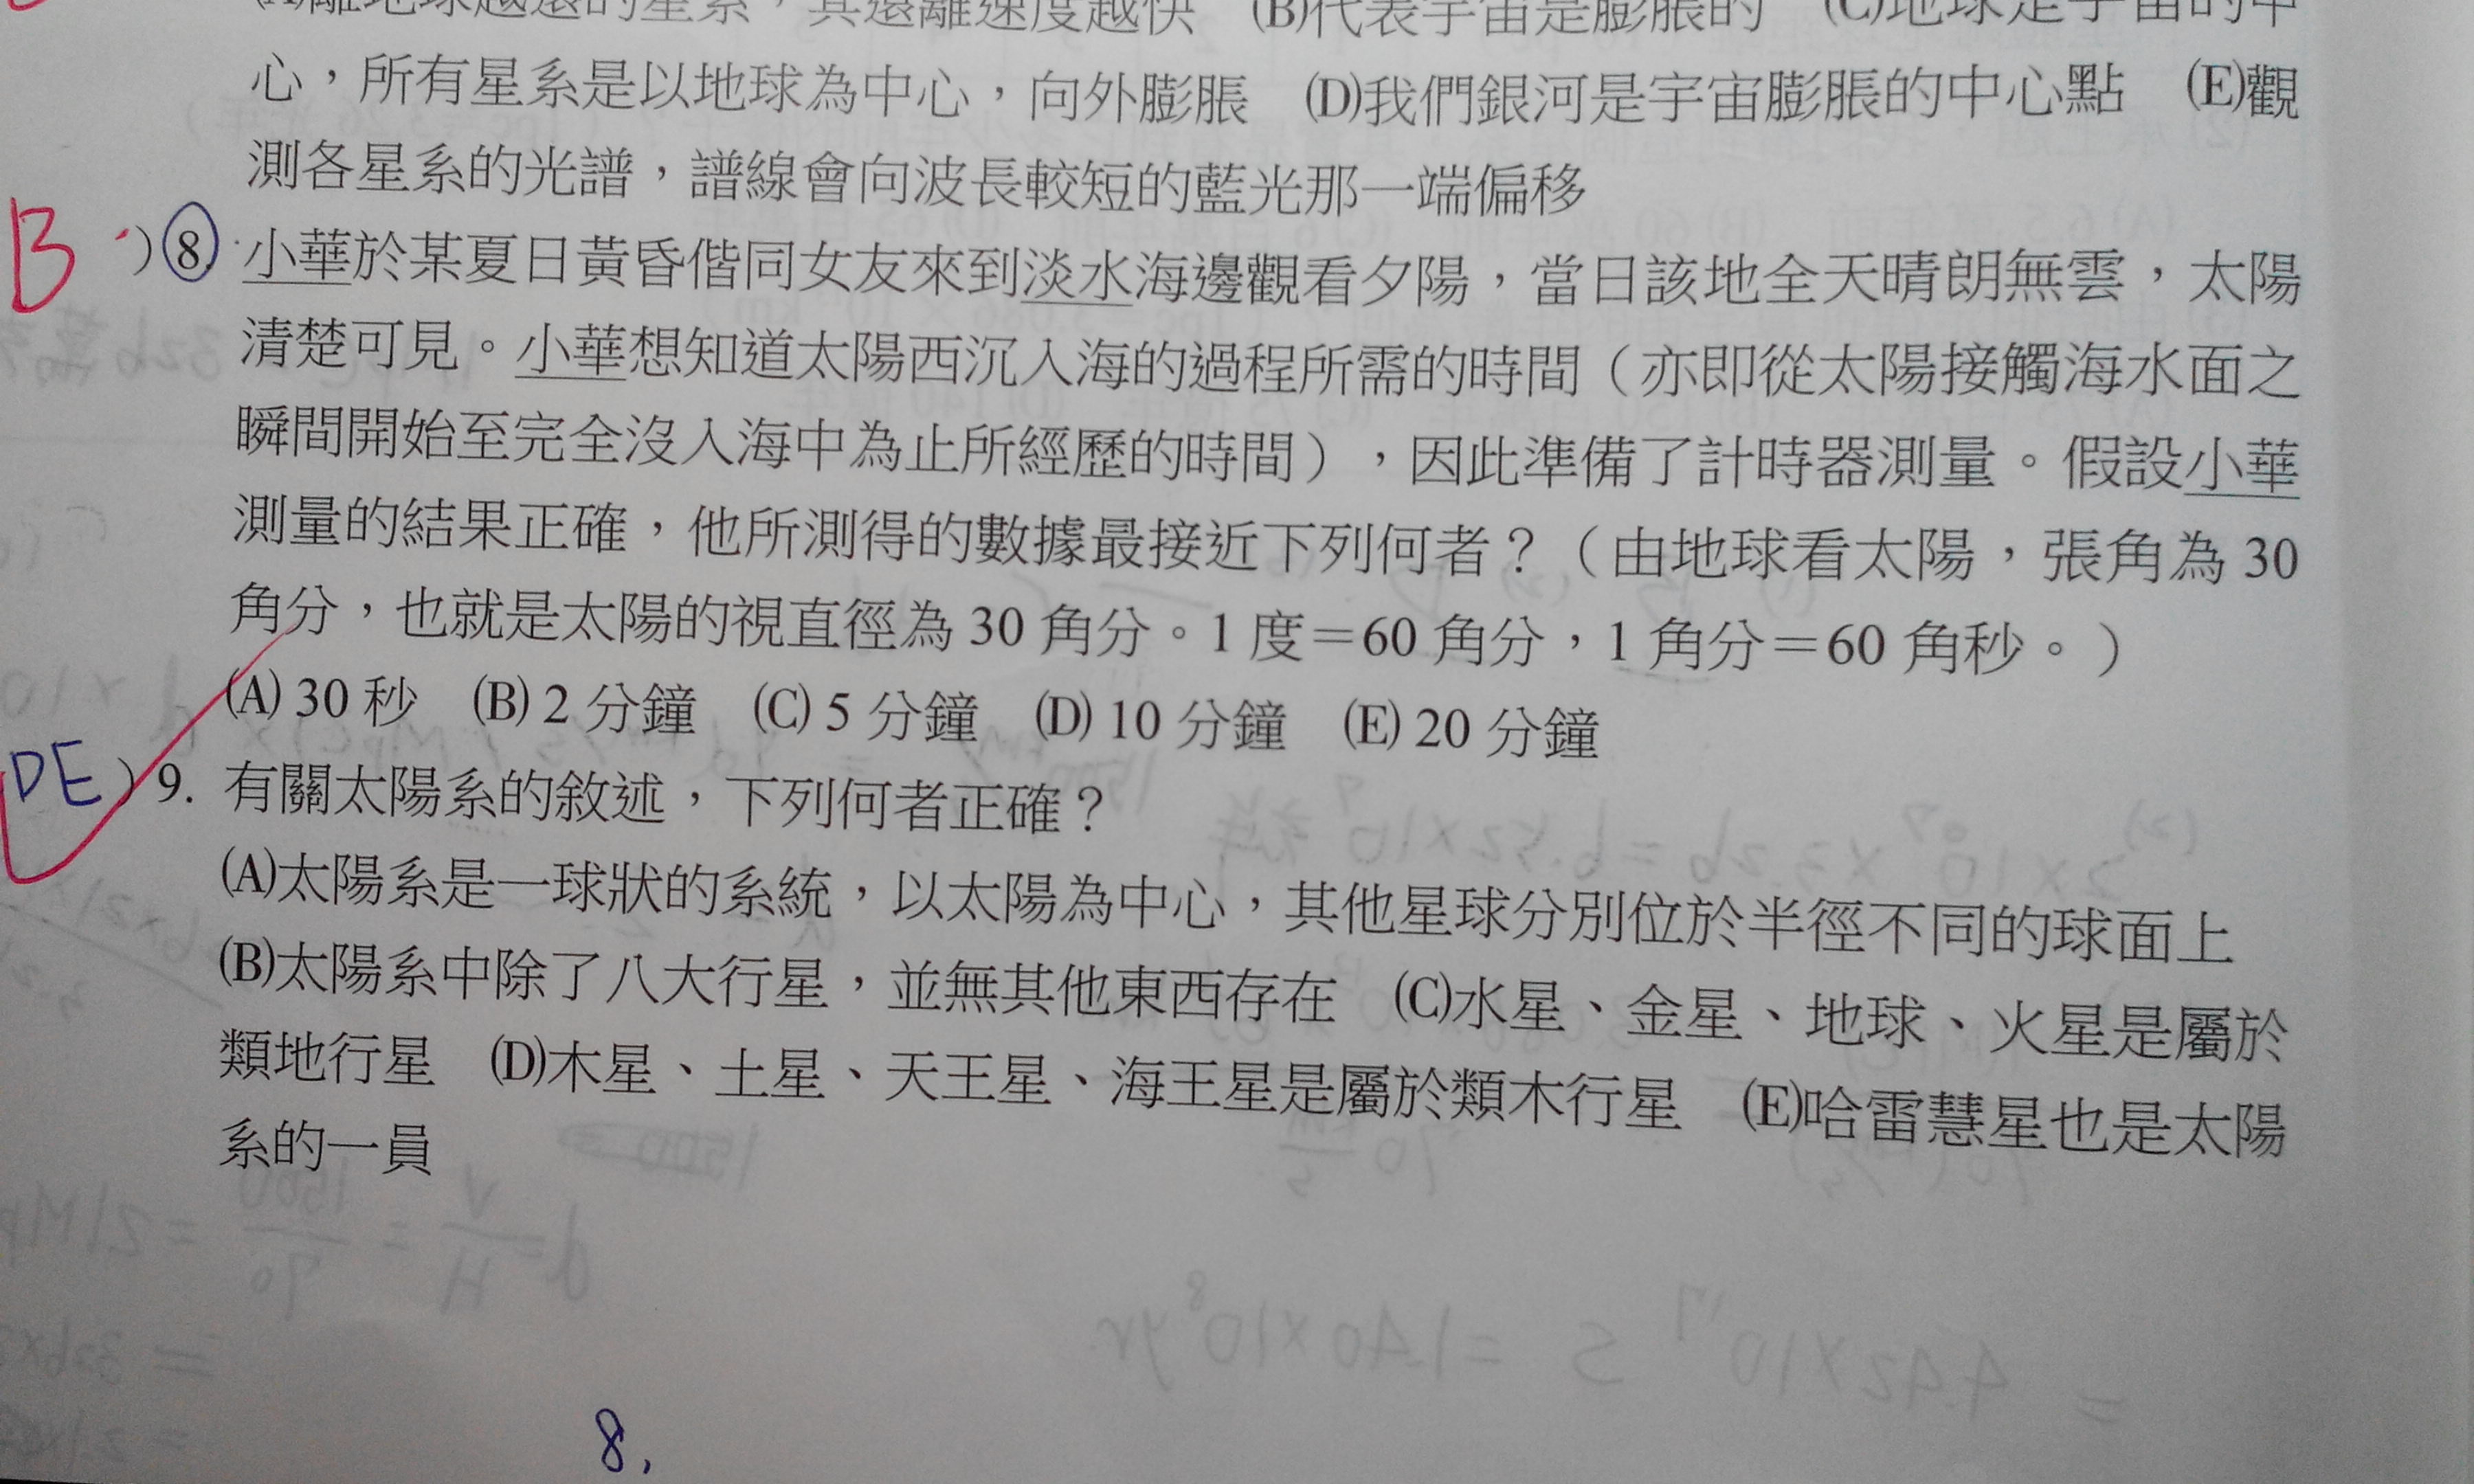 (A)離地球越遠的星系，其遠離速度越快 (B)代表宇宙是膨脹的 (C)地球是宇宙的中
心，所有星系是以地球為中心，向外膨脹 (D)我們銀河是宇宙膨脹的中心點 (E)觀
測各星系的光譜，譜線會向波長較短的藍光那一端偏移
B )8. 小華於某夏日黃昏偕同女友來到淡水海邊觀看夕陽，當日該地全天晴朗無雲，太陽
清楚可見。小華想知道太陽西沉入海的過程所需的時間（亦即從太陽接觸海水面之
瞬間開始至完全沒入海中為止所經歷的時間），因此準備了計時器測量。假設小華
測量的結果正確，他所測得的數據最接近下列何者？（由地球看太陽，張角為 30
角分，也就是太陽的視直徑為 30 角分。1 度＝60 角分，1 角分＝60 角秒。）
(A) 30 秒 (B) 2 分鐘 (C) 5 分鐘 (D) 10 分鐘 (E) 20 分鐘
DE )9. 有關太陽系的敘述，下列何者正確？
(A)太陽系是一球狀的系統，以太陽為中心，其他星球分別位於半徑不同的球面上
(B)太陽系中除了八大行星，並無其他東西存在 (C)水星、金星、地球、火星是屬於
類地行星 (D)木星、土星、天王星、海王星是屬於類木行星 (E)哈雷慧星也是太陽
系的一員
8.